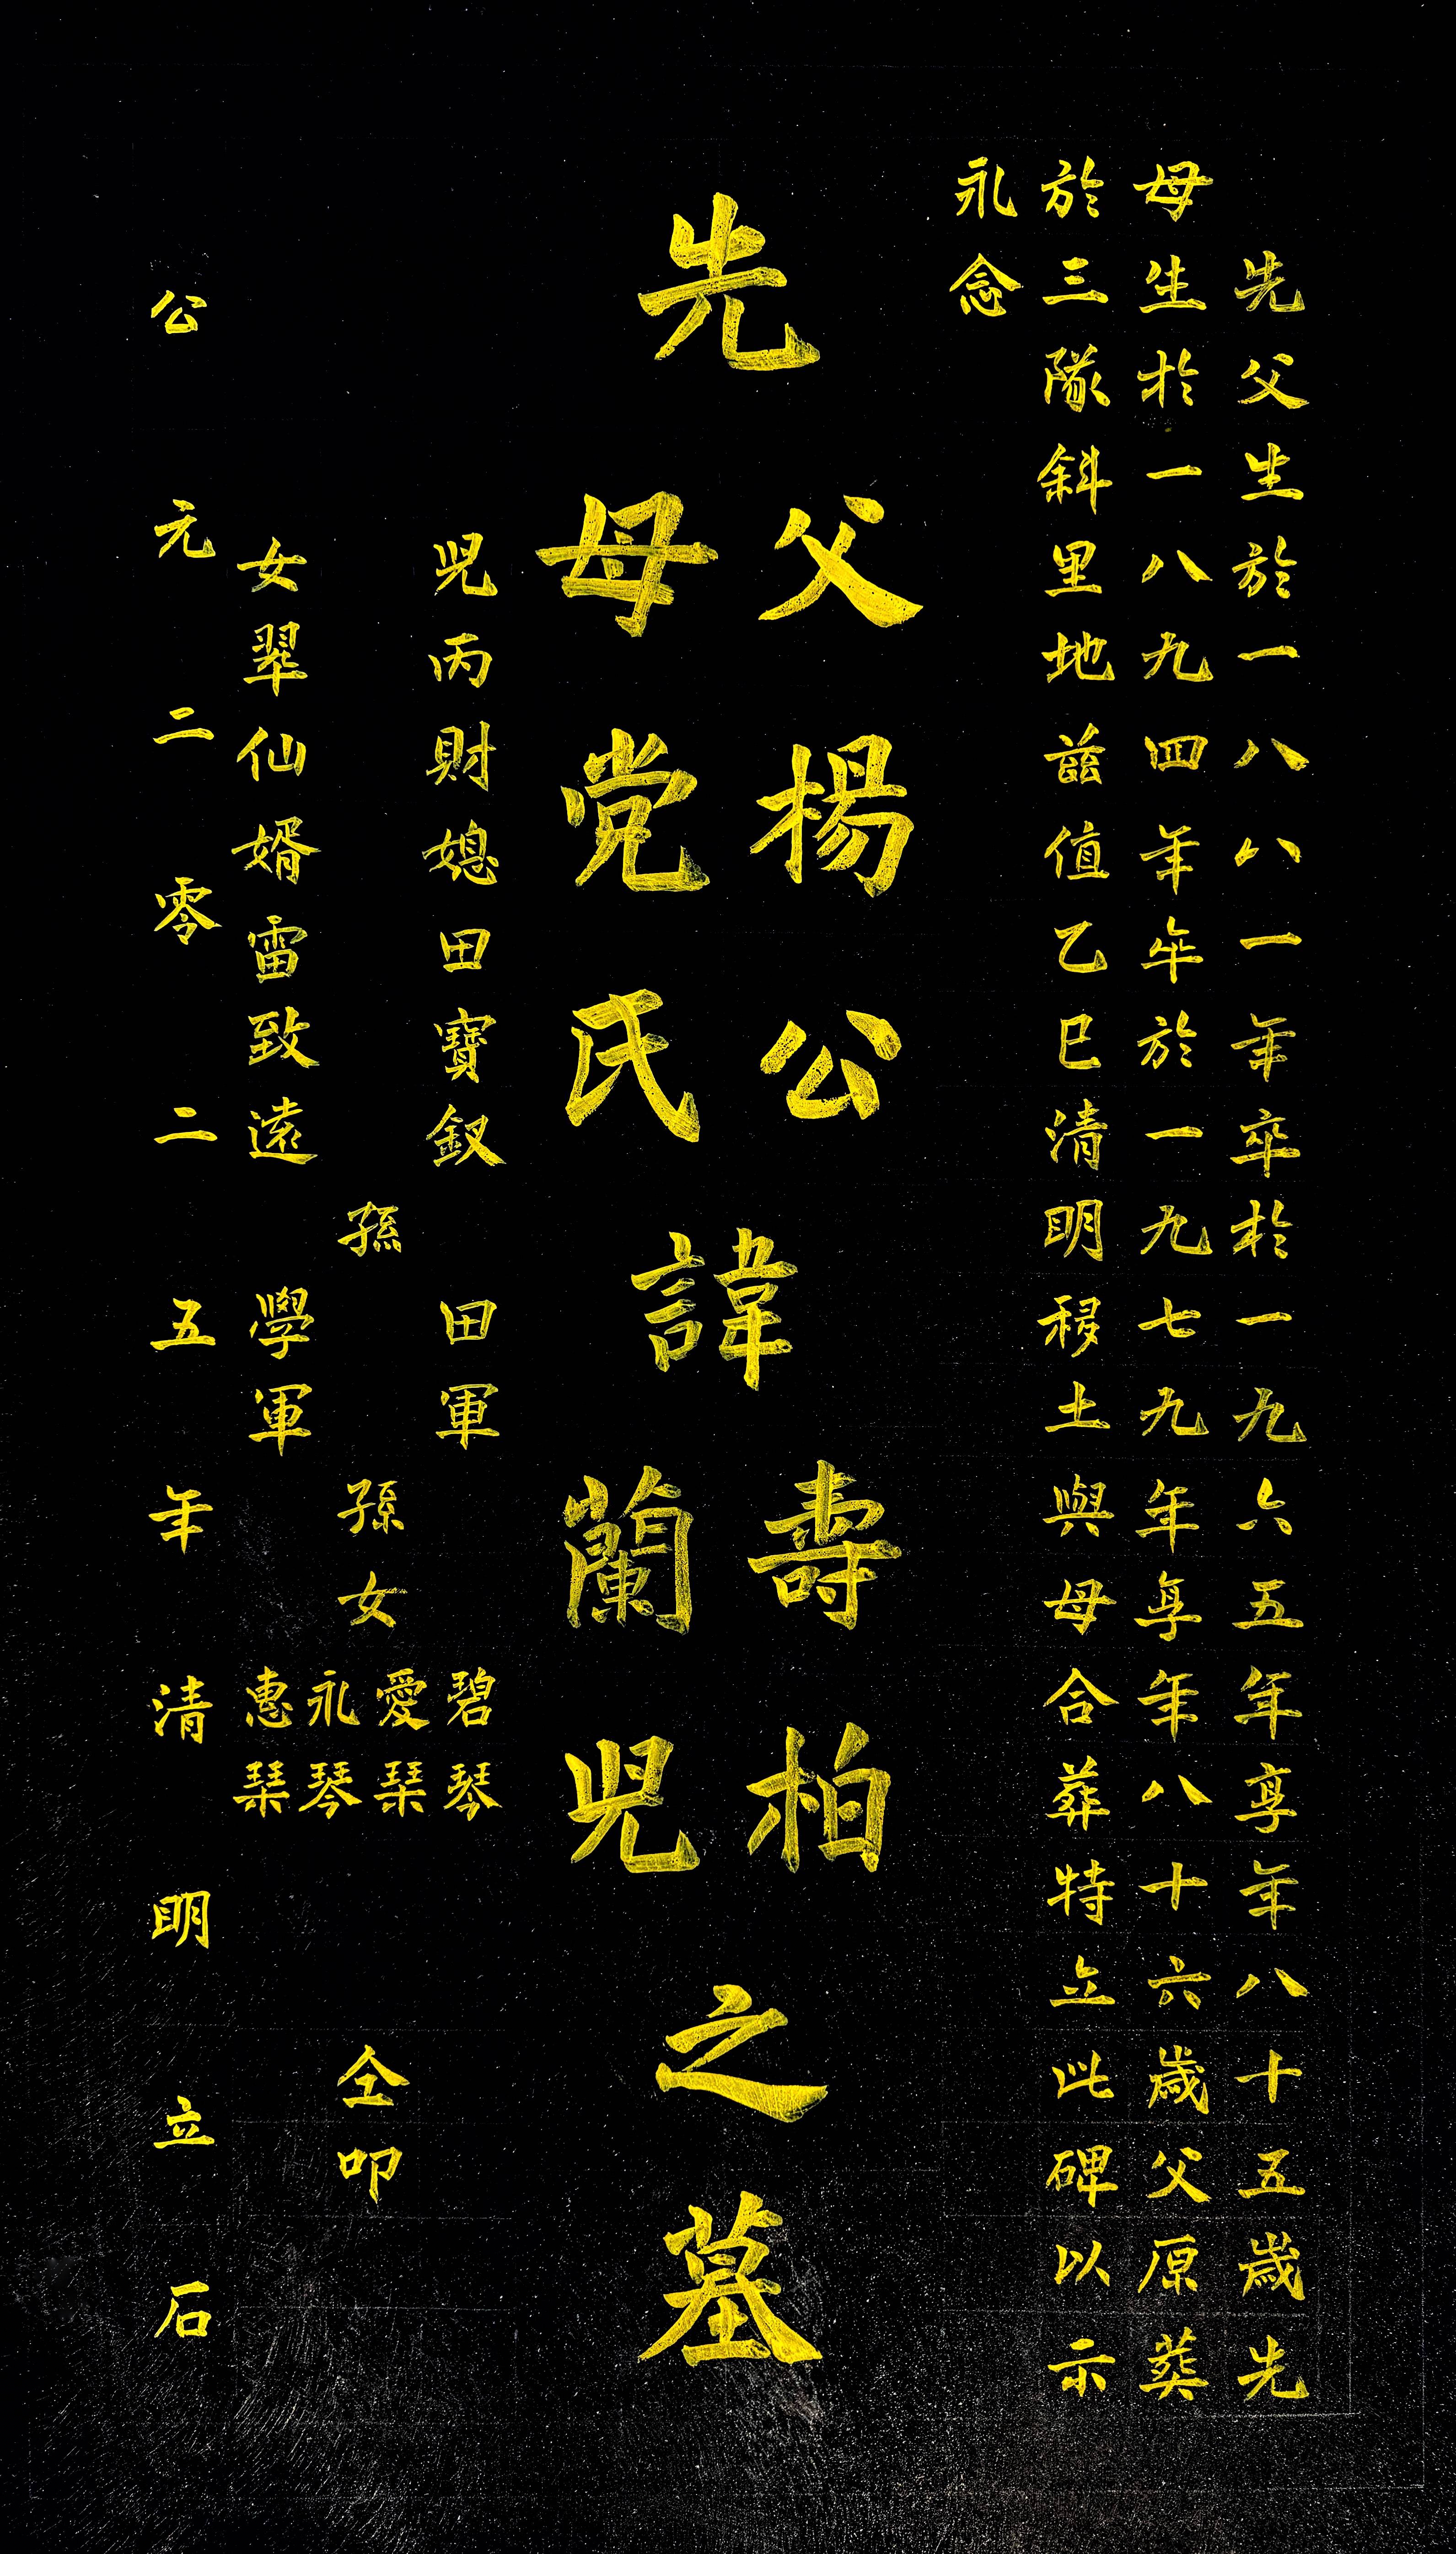 先父生於一八八一年卒於一九六五年享年八十五歲先
母生於一八九四年卒於一九七九年享年八十六歲父原葬
於三隊斜里地兹值乙巳清明移土與母合葬特立此碑以示
永念
先
父揚公
母党氏
諱
壽柏
蘭児
之墓
児丙財媳田寶釵
女翠仙婿雷致遠
孫
田軍
學軍
孫女
碧琴
愛琹
永琴
惠琹
仝叩
公元二零二五年清明立石